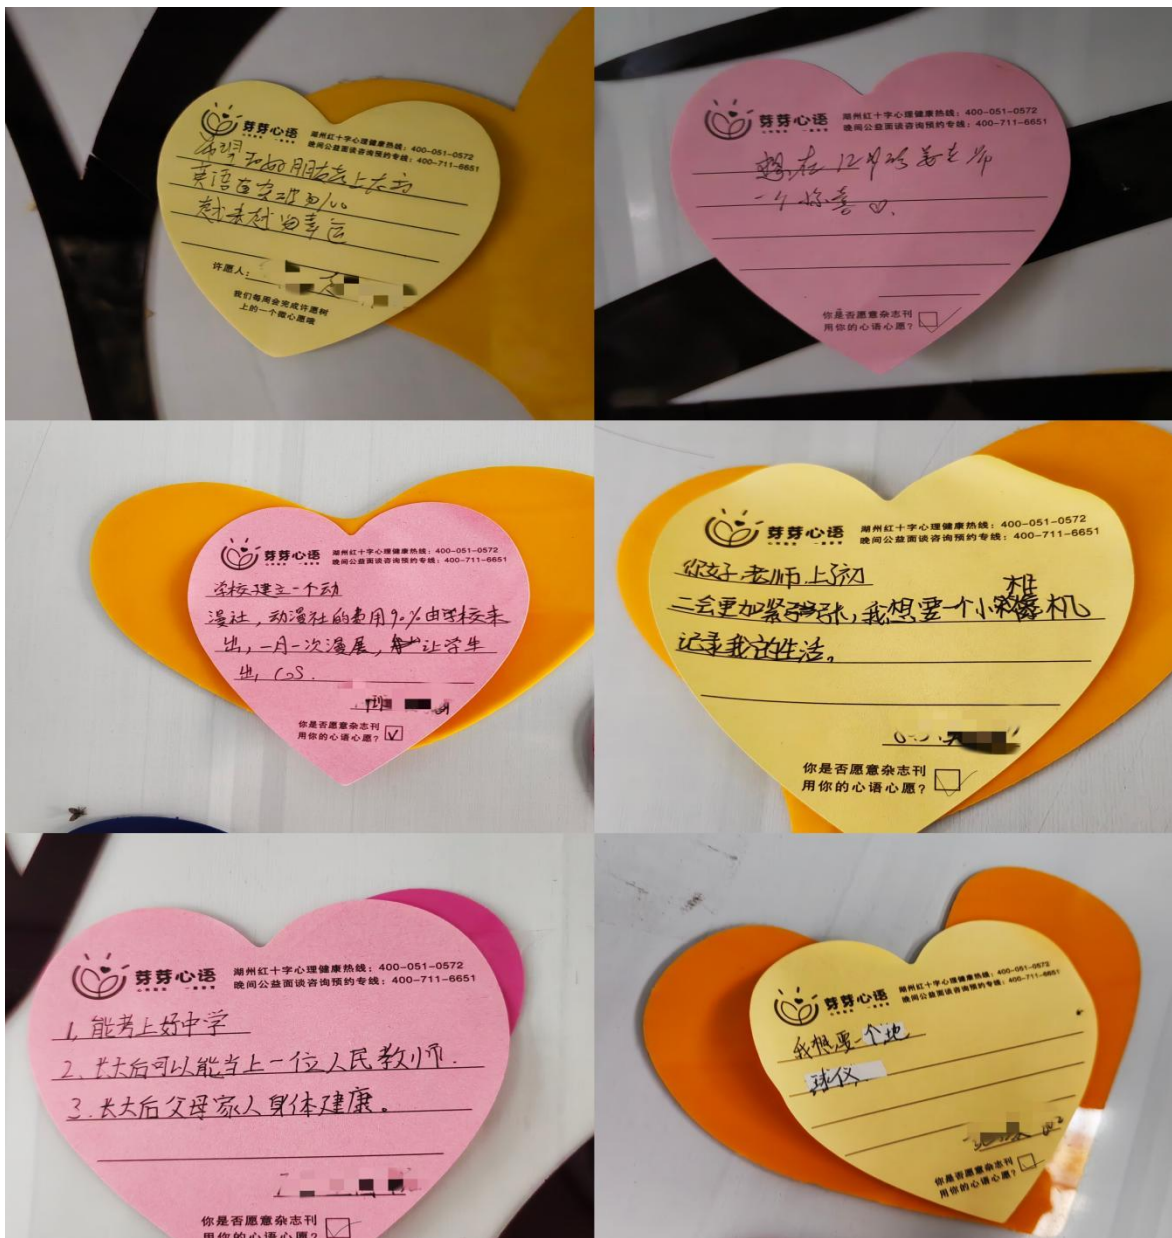 芽芽心语
湖州红十字心理健康热线：400-051-0572
晚间公益面谈咨询预约专线：400-711-6651
希望和好朋友考上大学
英语直突破的100
越来越好幸运
许愿人：
我们每周会完成许愿树
上的一个微心愿哦
芽芽心语
湖州红十字心理健康热线：400-051-0572
晚间公益面谈咨询预约专线：400-711-6651
想在12月给姜老师
一个惊喜♡.
你是否愿意杂志刊
用你的心语心愿？
芽芽心语
湖州红十字心理健康热线：400-051-0572
晚间公益面谈咨询预约专线：400-711-6651
学校建立一个动
漫社，动漫社的费用90%由学校来
出，一月一次漫展，让学生
出，cos.
你是否愿意杂志刊
用你的心语心愿？
芽芽心语
湖州红十字心理健康热线：400-051-0572
晚间公益面谈咨询预约专线：400-711-6651
你好，老师，上了初
二会更加紧张，我想要一个小相机
记录我的生活。
你是否愿意杂志刊
用你的心语心愿？
芽芽心语
湖州红十字心理健康热线：400-051-0572
晚间公益面谈咨询预约专线：400-711-6651
1，能考上好中学
2、长大后可以能当上一位人民教师.
3.长大后父母家人身体建康。
你是否愿意杂志刊
用你的心语心愿？
芽芽心语
湖州红十字心理健康热线：400-051-0572
晚间公益面谈咨询预约专线：400-711-6651
我想要一个地
球仪.
你是否愿意杂志刊
用你的心语心愿？